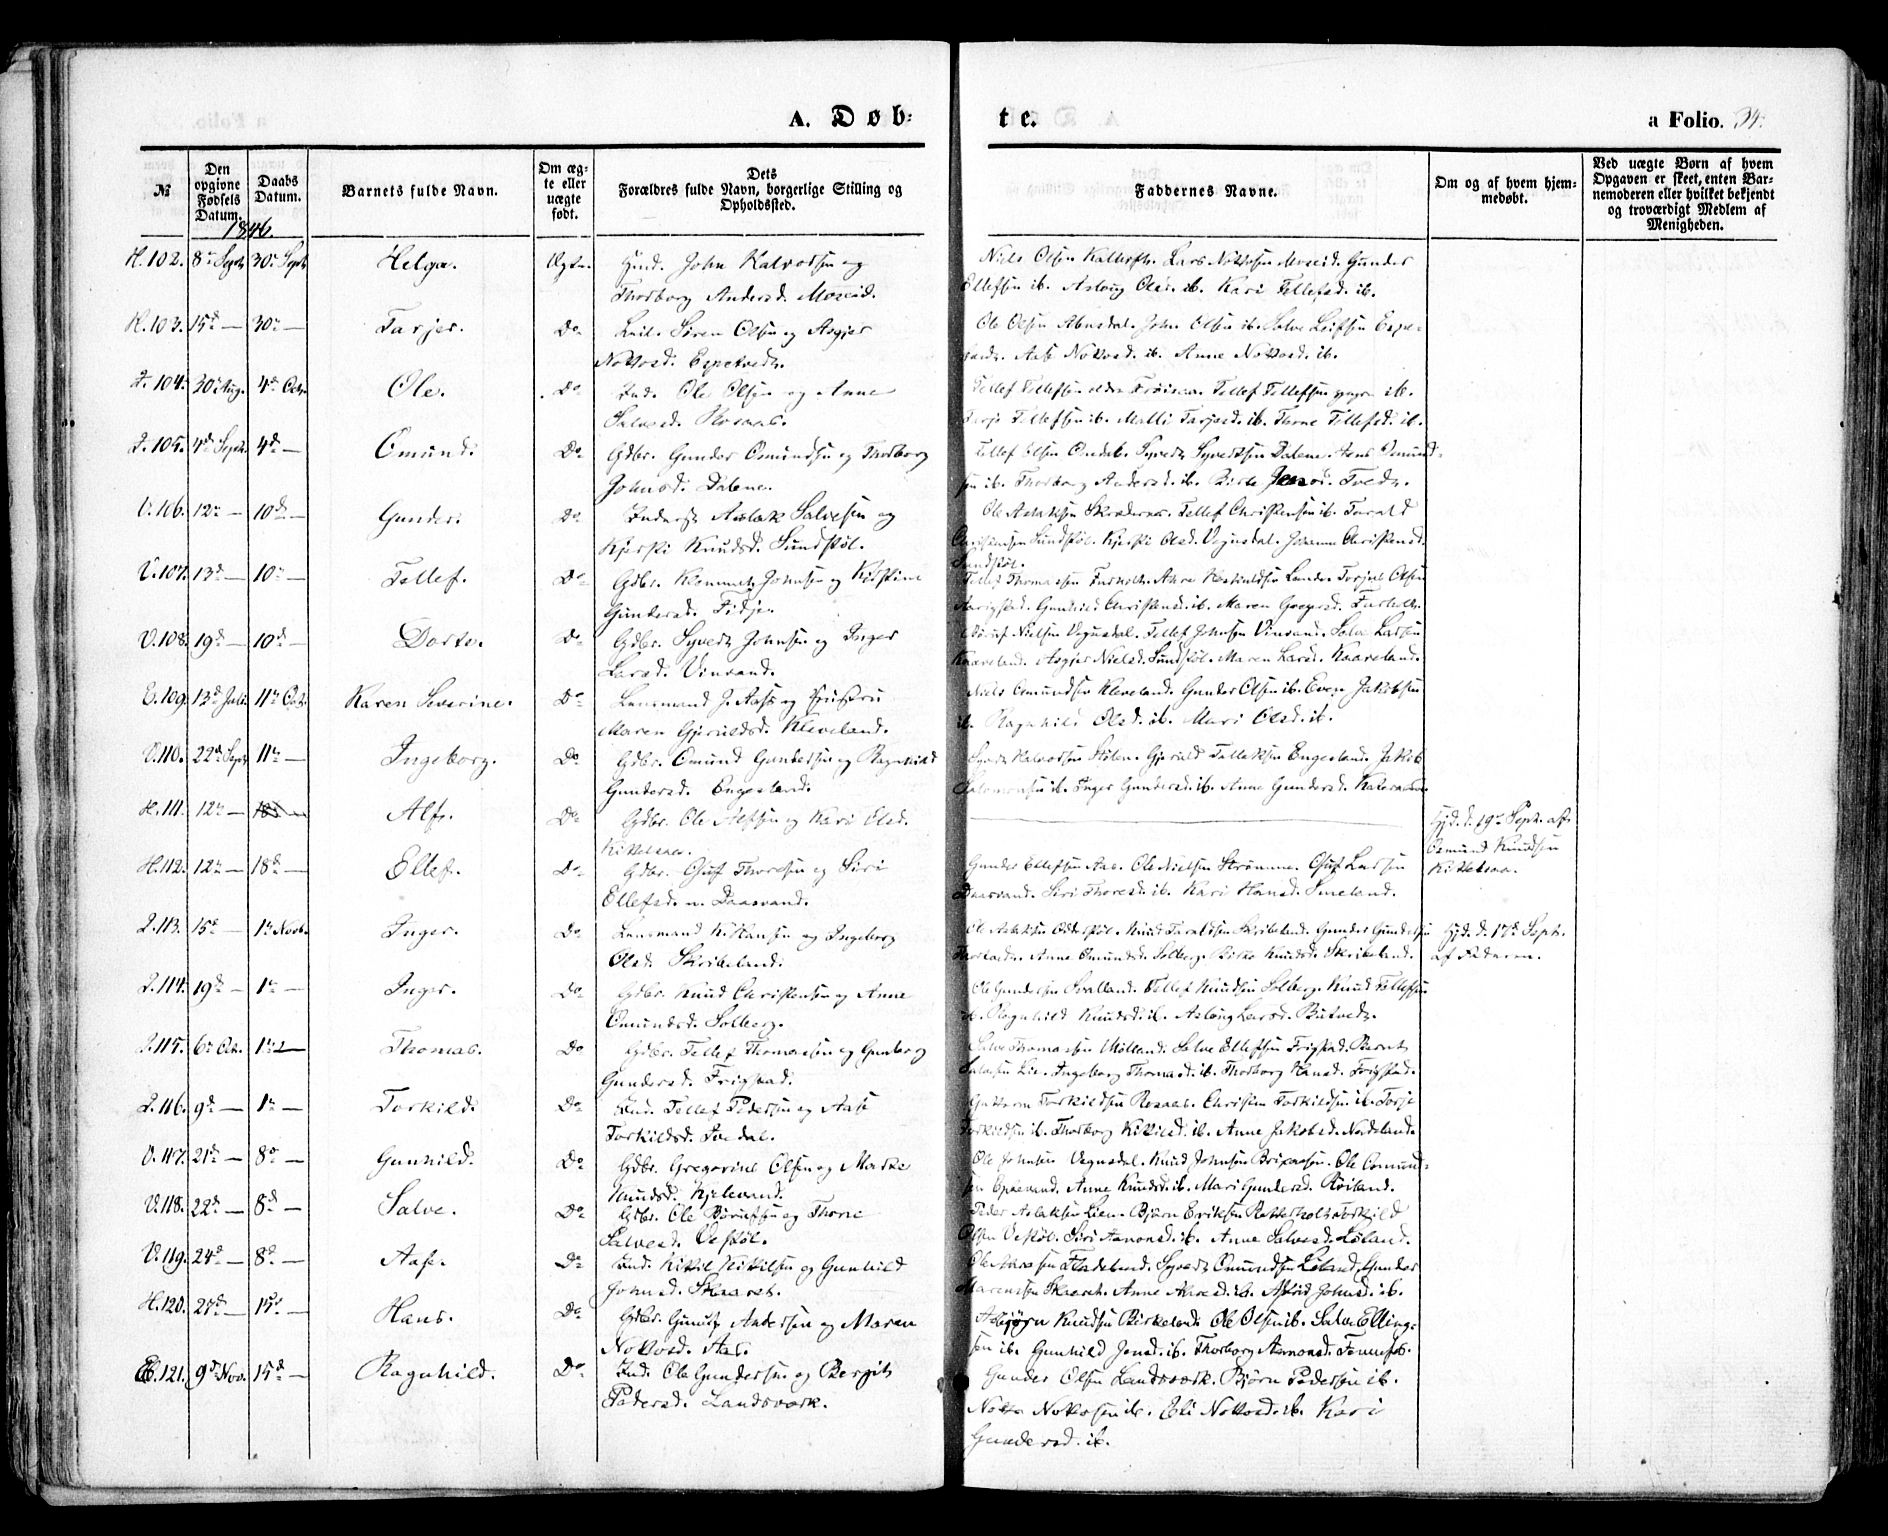 A. Døb-
te.
a Folio. 34.
№
Den opgivne Fødsels Datum.
Daabs Datum.
Barnets fulde Navn.
Om ægte eller uægte født.
Dets Forældres fulde Navn, borgerlige Stilling og Opholdssted.
Faddernes Navne.
Om og af hvem hjemmedøbt.
Ved uægte Børn af hvem Opgaven er skeet, enten Barnemoderen eller hvilket bekjendt og troværdigt Medlem af Menigheden.
1846.
H. 102. 8de Sept. 30te Sept. Helga. Ægte. John Halvorsen og
Thorborg Andersd. Moseid.
Niels Olsen Lars Nottosen Moseid. Gunder
Ellefsen ib. Asloug Olsd. ib. Kari Tellefsd. ib.
H. 103. 15d — 30te — Tarjer. Do Søren Olsen og Asgjer
Nottosd. Espetvedt.
Ole Olsen John Olsen ib. Salve
Aase Nottosd. ib. Anne Nottosd. ib.
104. 30te Aug. 4de Octr. Ole. Do Ind. Ole Olsen og Anne
Salvesd.
Tellef Tellefsen ældre Tellef Tellefsen yngre ib.
Terje Tellefsen ib. Malli Tarjesd. ib. Thone Tellefsd. ib.
105. 4de Sept. 4de — Omund. Do Gdbr. Gunder Omundsen og Thorborg
Johnsd. Dalene.
Tellef Olsen Syvert Syvertsen Dalene. Omund-
sen ib. Thorborg Andersd. ib. Tvedt.
V. 106. 12te — 10de — Gunder. Do Inderst Aslak Salvesen og
Kjersti Knudsd. Sundstøl.
Ole Aslaksen Tellef Christensen ib. Torald
Christensen Sundstøl. Kjersti Olsd. Vegusdal. Johanne Christensd.
Sundstøl.
V. 107. 13d — 10de — Tellef. Do Gdbr. Klemmet Johnsen og Kirstine
Gundersd. Fidje.
Tellef Thomassen Torjus Olsen
Gunhild Christensd. ib. Maren
V. 108. 19d — 10d — Dorte. Do Gdbr. Syvert Johnsen og Inger
Larsd. Vinrand.
Nielsen Vegusdal. Tellef Johnsen Vinrand. Salve Larsen
Kaaveland. Asgjer Nielsd. Sundstøl. Maren Larsd. Kaaveland.
E. 109. 13d Juli. 11te Octr. Karen Severine. Do Lensmand J. Aas og Hustru
Maren Gjeruldsd. Kleveland.
Niels Omundsen Kleveland. Gunder Olsen ib. Even Jakobsen
ib. Ragnhild Olsd. ib. Mari Olsd. ib.
V. 110. 22de Sept. 11te — Ingeborg. Do Gdbr. Omund Gundersen og Ragnhild
Gundersd. Engesland.
Syvert Halvorsen Gjeruld Tellefsen Engesland. Jakob
Salomonsen ib. Inger Gundersd. ib. Anne Gundersd.
H. 111. 12te — Alf. Do Gdbr. Ole Alfsen og Kari Olsd.
Kittelsaa.
Hjd. d. 19de Septr. af
Osmund Knudsen
Kittelsaa.
H. 112. 12te — 18d — Ellef. Do Gdbr. Thorsen og Siri
Ellefsd. n. Daasvand.
Gunder Ellefsen Aas. Ole Nielsen Strømme. Larsen
Daasvand. Siri Thoresd. ib. Kari Hansd. Smeland.
113. 15d — 1te Novb. Inger. Do Lensmand K. Hansen og Ingeborg
Olsd. Skribeland.
Ole Aslaksen Knud Taraldsen Skribeland. Gunder Gundersen
Anne Omundsd. Solberg. Knudsd. Skribeland.
Hjd. d. 17d Septr.
af Faderen.
114. 19d — 1te — Inger. Do Gdbr. Knud Christensen og Anne
Omundsd. Solberg.
Ole Gundersen Svalland. Tellef Knudsen Solberg. Knud Tellefsen
ib. Ragnhild Knudsd. ib. Aslaug Larsd.
115. 6te Oct. 1te — Thomas. Do Gdbr. Tellef Thomassen og Gunborg
Gundersd. Frigstad.
Salve Thomassen Mølland. Salve Ellefsen Frigstad. Bernt
Salvesen Lie. Ingeborg Thomasd. ib. Thorborg Hansd. Frigstad.
116. 9d — 1te — Torkild. Do Ind. Tellef Pedersen og Aase
Torkildsd.
Guttorm Torkildsen Christen Torkildsen ib. Torje
Torkildsen ib. Thorborg ib. Anne Jakobsd. Nordland.
V. 117. 21de — 8de — Gunhild. Do Gdbr. Gregorius Olsen og Marte
Knudsd.
Ole Johnsen Vegusdal. Knud Johnsen Ole Omund-
sen Anne Knudsd. ib. Mari Gundersd. Røiland.
V. 118. 22de — 8d — Salve. Do Gdbr. Ole og Thone
Salvesd. Vestøl.
Peder Aslaksen Lien. Bjørn Eriksen Torkild
Olsen Vestøl. Siri Aanonsd. ib. Anne Salvesd. Løland.
V. 119. 24de — 8d — Aase. Do Ind. Kittil Kittilsen og Gunhild
Johnsd. Skaaret.
Syvert Omundsen Løland. Gunder
Skaaret. Anne ib. Astrid Johnsd. ib.
H. 120. 27d — 15d — Hans. Do Gdbr. Gunuf Andersen og Maren
Nottosd. Aas.
Asbjørn Knudsen Birkeland. Ole Olsen ib. Salve Elling-
sen ib. Gunhild Jensd. ib. Thorborg Aanonsd.
E. 121. 9d Nov. 15d — Ragnhild. Do Ind. Ole Gundersen og Bergit
Pedersd. Landsværk.
Gunder Olsen Landsværk. Bjørn Pedersen ib.
Notto Nottosen ib. Eli Nottosd. ib. Kari
Gundersd. ib.